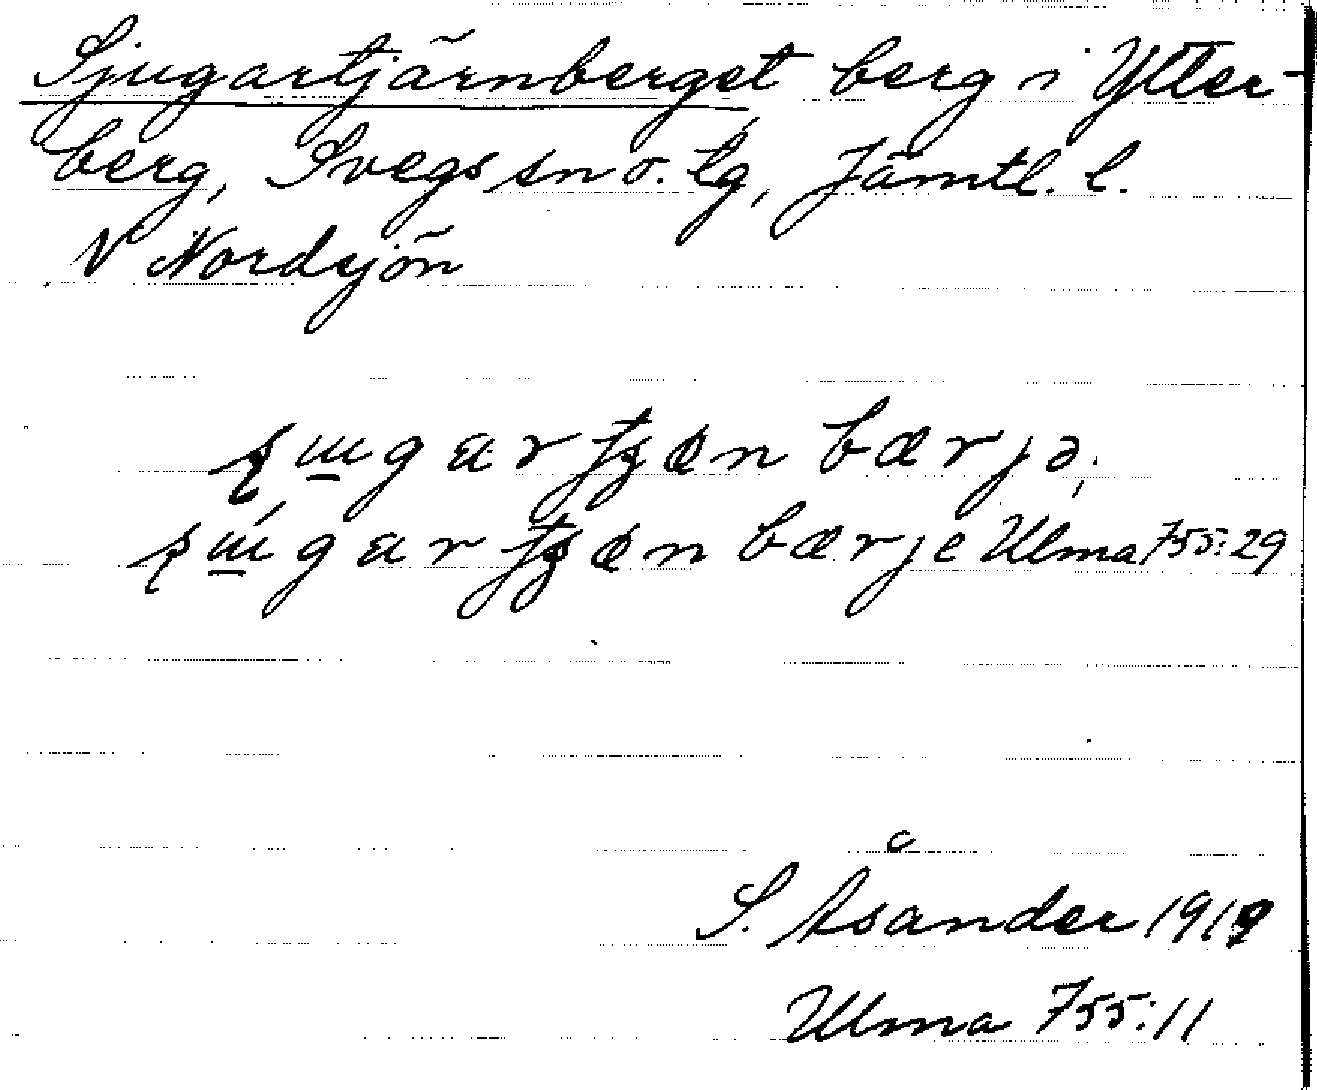 Sjugartjärnberget berg i Ytter-
berg, Svegs sn o. tg, Jämtl. l.
N Nordsjön
bærjə,
bærje Ulma 755:29
S. Åsander 1919
Ulma 755:11